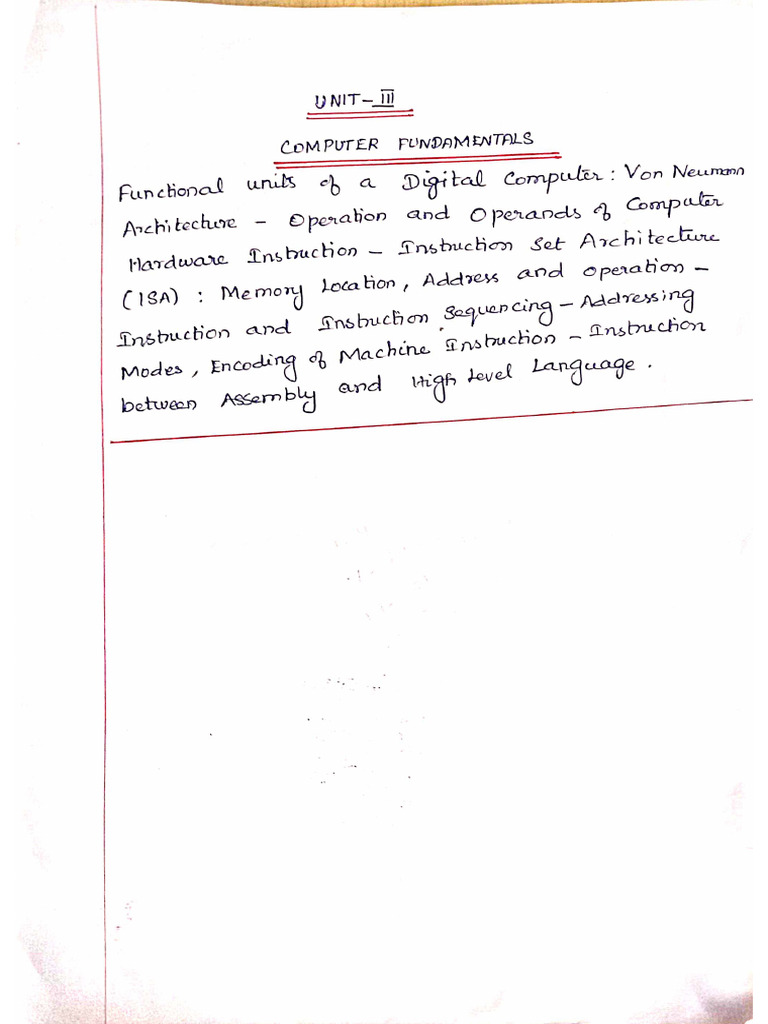 UNIT-III
COMPUTER FUNDAMENTALS
Functional units of a Digital Computer: Von Neumann
Architecture - Operation and Operands of Computer
Hardware Instruction - Instruction Set Architecture
(ISA) : Memory Location, Address and Operation -
Instruction and Instruction Sequencing - Addressing
Modes, Encoding of Machine Instruction - Instruction
between Assembly and High Level Language.